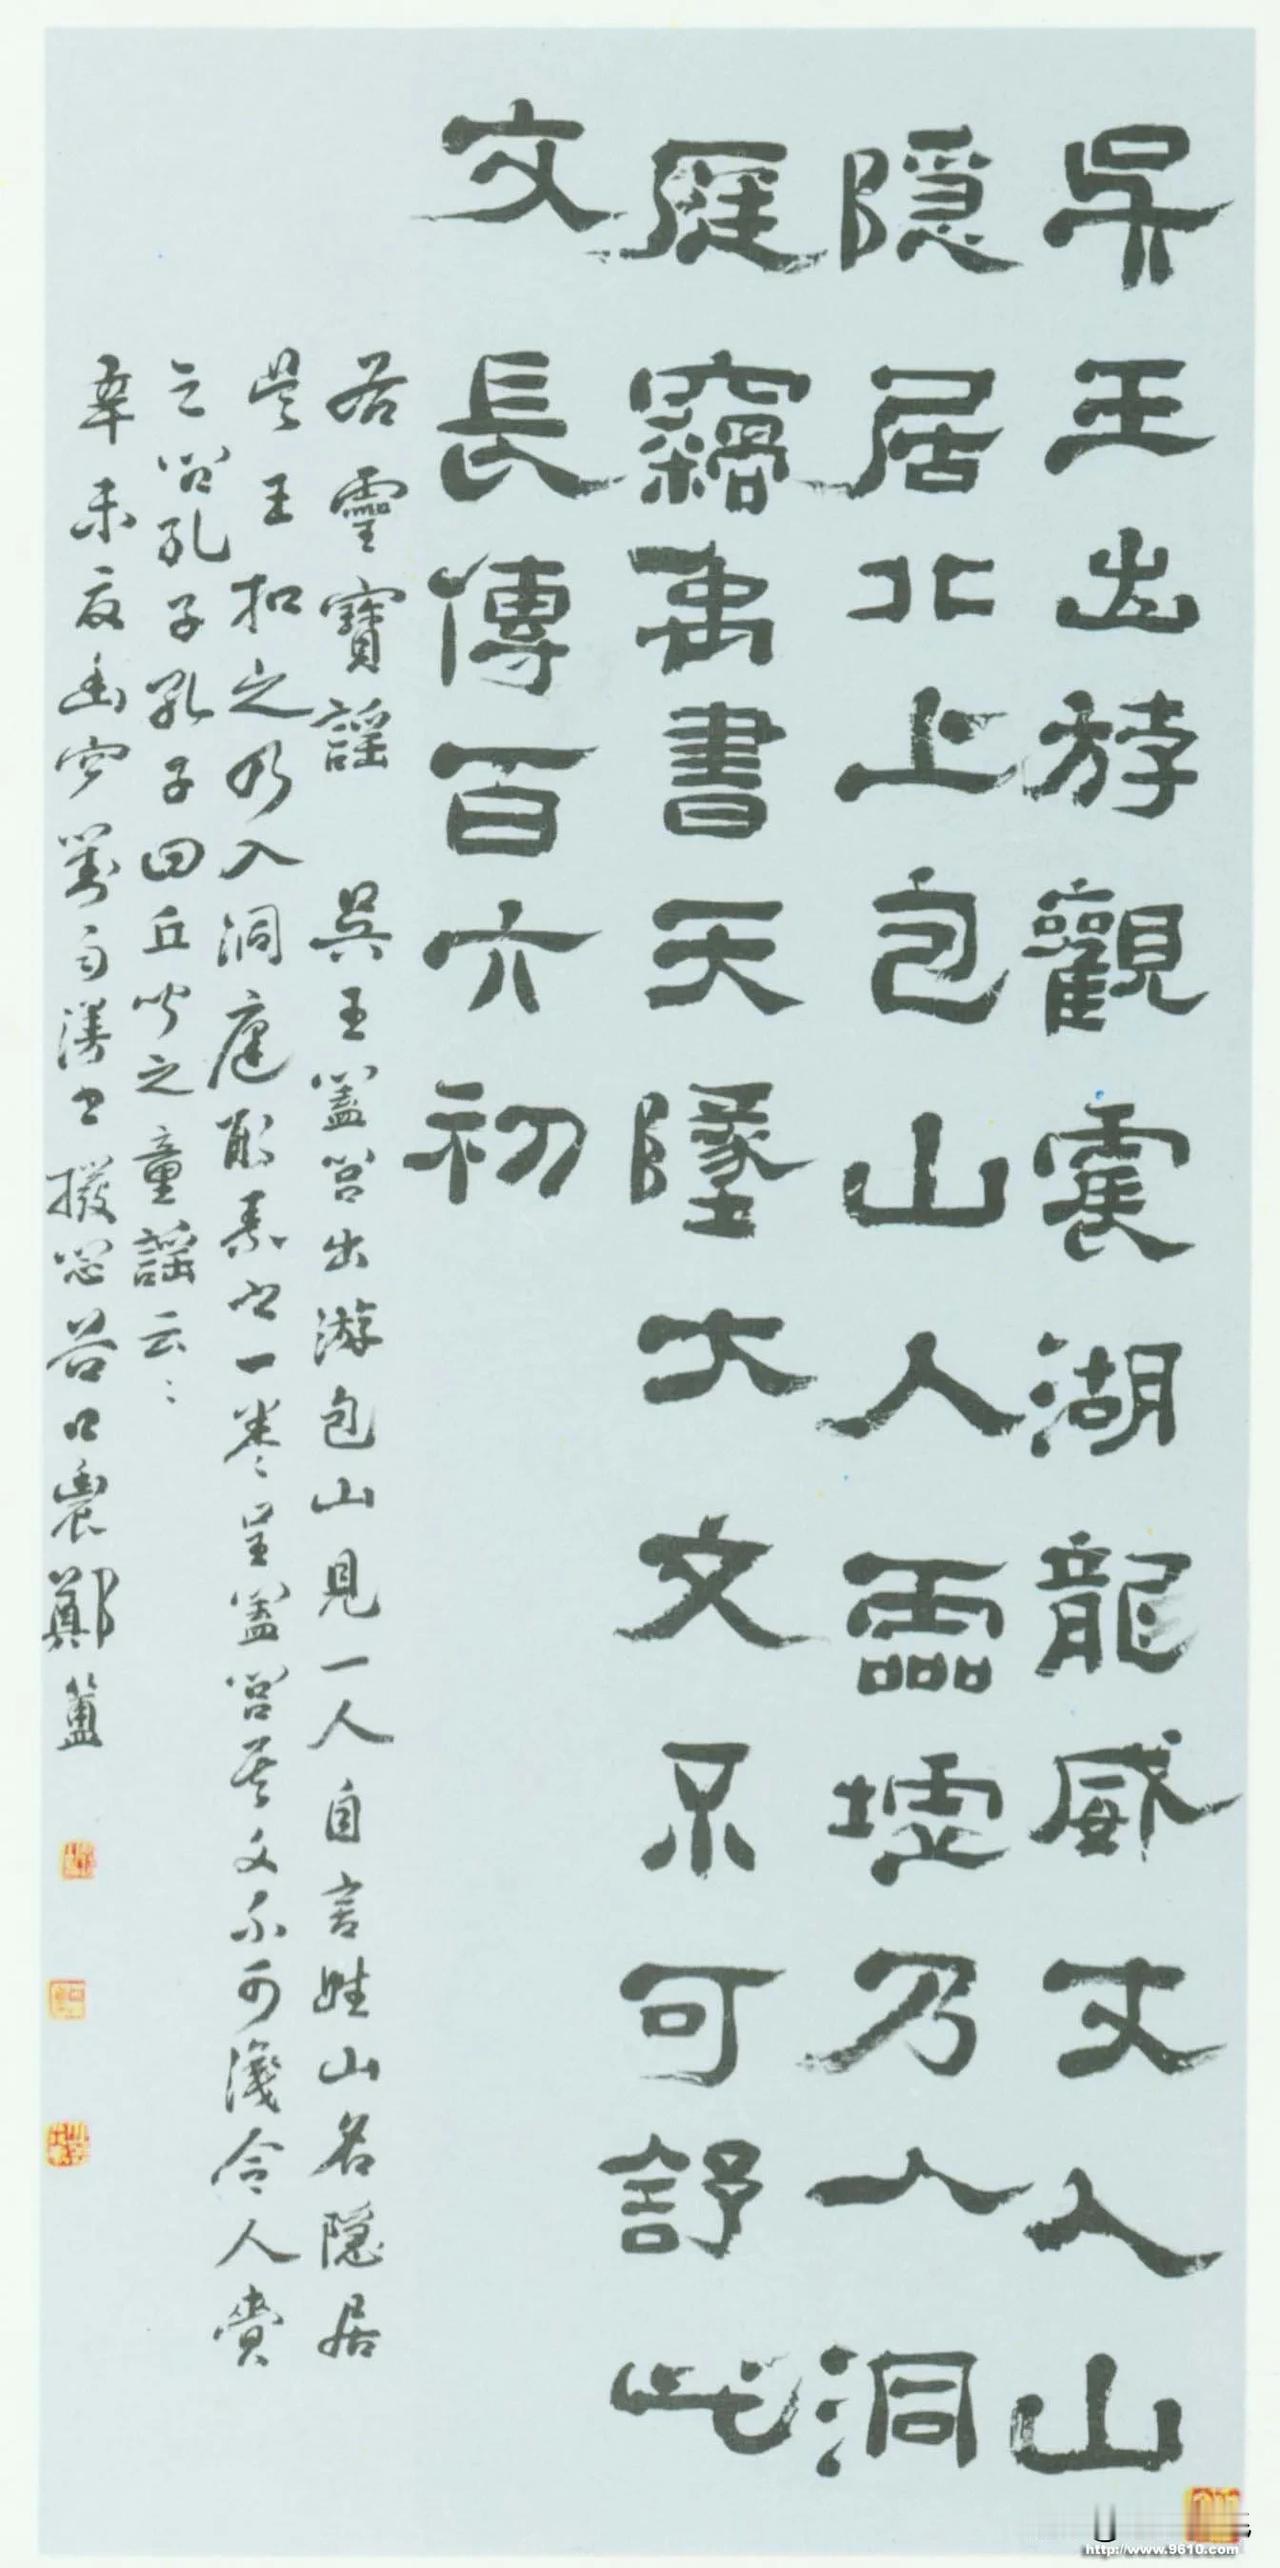 吳王出游觀震湖龍威丈人山
隱居北上包山人靈墟乃入洞
庭竊禹書天墜大文不可舒此
文長傳百六初
右靈寶謠 吳王蓋閭出游包山見一人自言姓山名隱居
吳王扣之乃入洞庭取素書一卷呈蓋閭其文不可識令人賫
之問孔子孔子曰丘聞之童謠云云
辛未夏幽窗對雨漫書撥悶谷口農鄭簠
http://www.9610.com